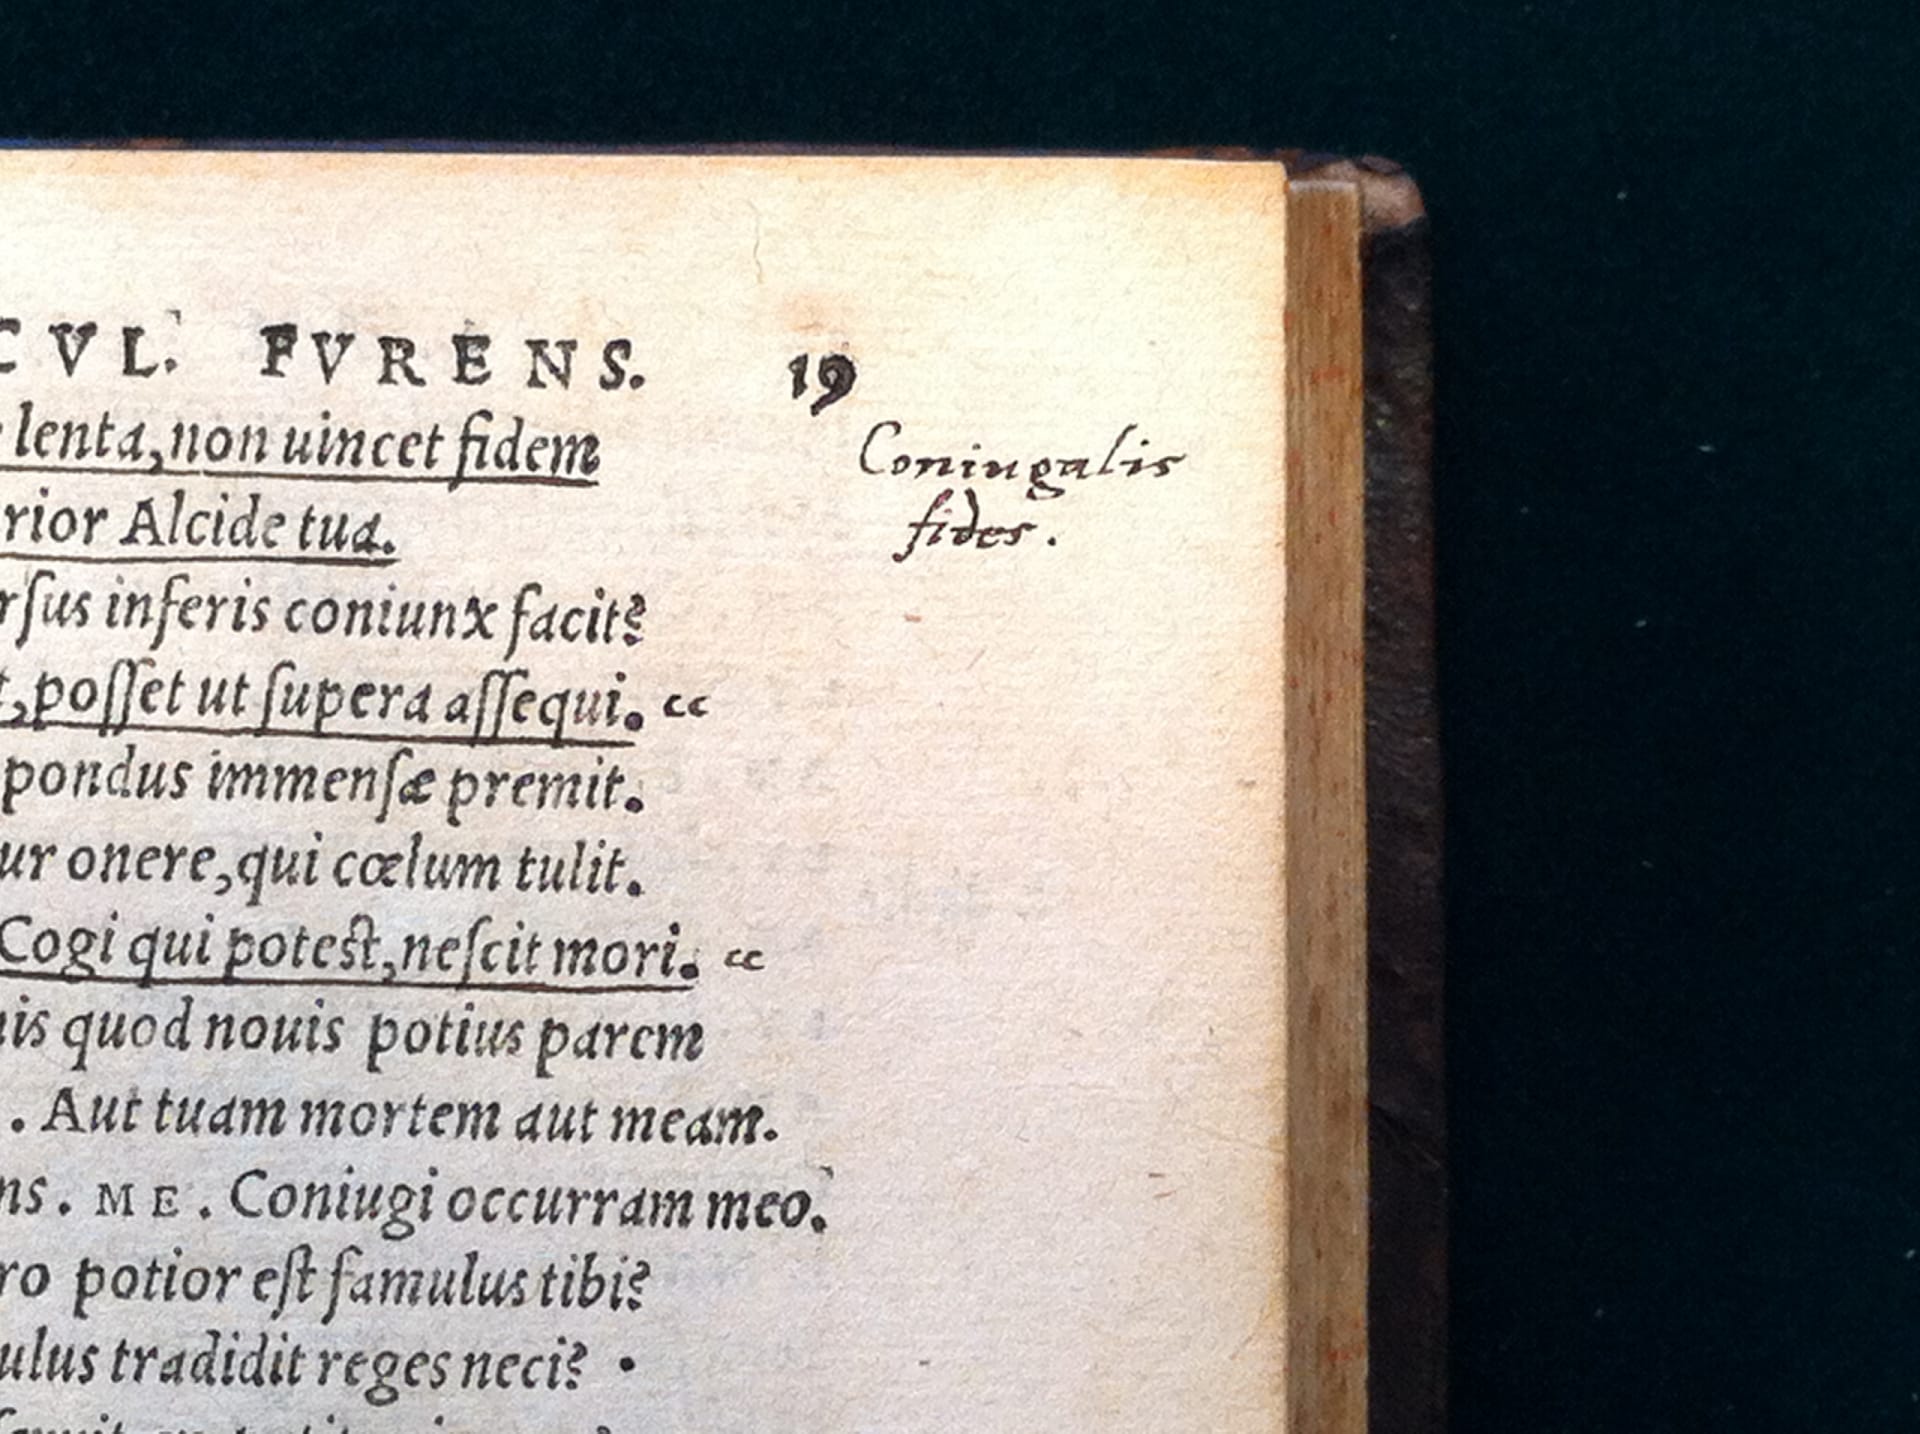 CVL. FVRENS. 19
lenta,non uincet fidem
Coniugalis
fides.
rior Alcide tua.
rſus inferis coniunx facit?
t,poſſet ut ſupera aſſequi. cc
pondus immenſæ premit.
ur onere,qui cœlum tulit.
Cogi qui poteſt,neſcit mori. cc
uis quod nouis potius parem
. Aut tuam mortem aut meam.
ns. ME. Coniugi occurram meo.
ro potior eſt famulus tibi?
ulus tradidit reges neci? •